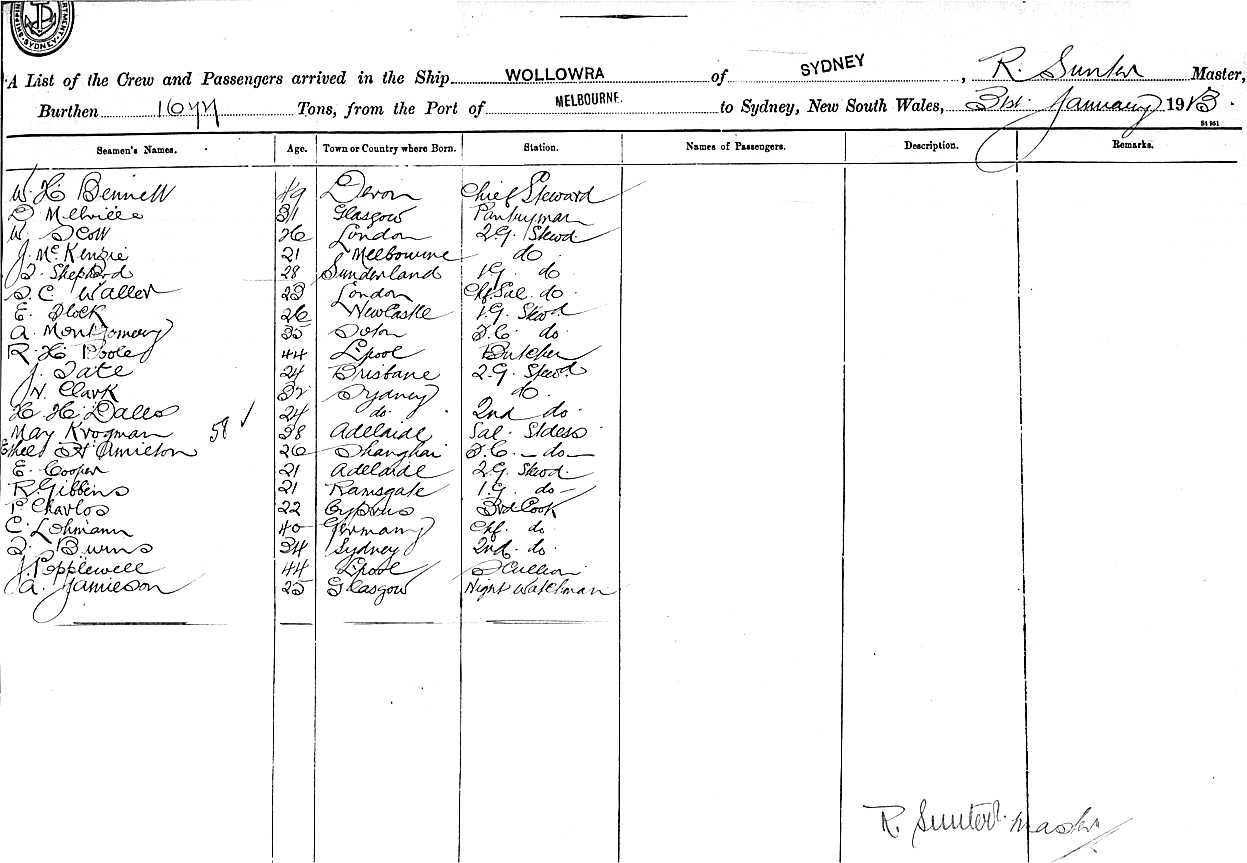 SYDNEY
A List of the Crew and Passengers arrived in the Ship WOLLOWRA of SYDNEY, R. Sunter Master,
Burthen Tons, from the Port of MELBOURNE. to Sydney, New South Wales, January 1913.
Seamen's Names. Age. Town or Country where Born. Station. Names of Passengers. Description. Remarks.
W. H. Bennett 49 Devon Chief Steward
D Melville 31 Glasgow Pantryman
W. Scott 26 London 2.G. Stewd
J. McKenzie 21 Melbourne do.
Shepherd 28 Sunderland 1.G. do
C. Waller 23 London Chf. Sal. do.
E. 26 Newcastle 1.G. Stewd
A. Montgomery 35 do.
R. H. Poole 44 L'pool Butcher
J. Tate 24 Brisbane 2.G. Stewd.
N. Clark 32 Sydney do.
H. H. 24 do. 2nd do.
May Krogman 58 ✓ 38 Adelaide Sal. Stdess
Ethel Hamilton 26 Shanghai - do -
E. Cooper 21 Adelaide 2.G. Stewd.
R. Gibbens 21 Ramsgate 1.G. do -
P Charlos 22 Cyprus 3rd Cook
C. Lohmann 40 Germany Chf. do.
Burns 34 Sydney 2nd. do.
J. Popplewell 44 L'pool Scullion
A. Jamieson 25 Glasgow Night Watchman
R. Sunter. Master